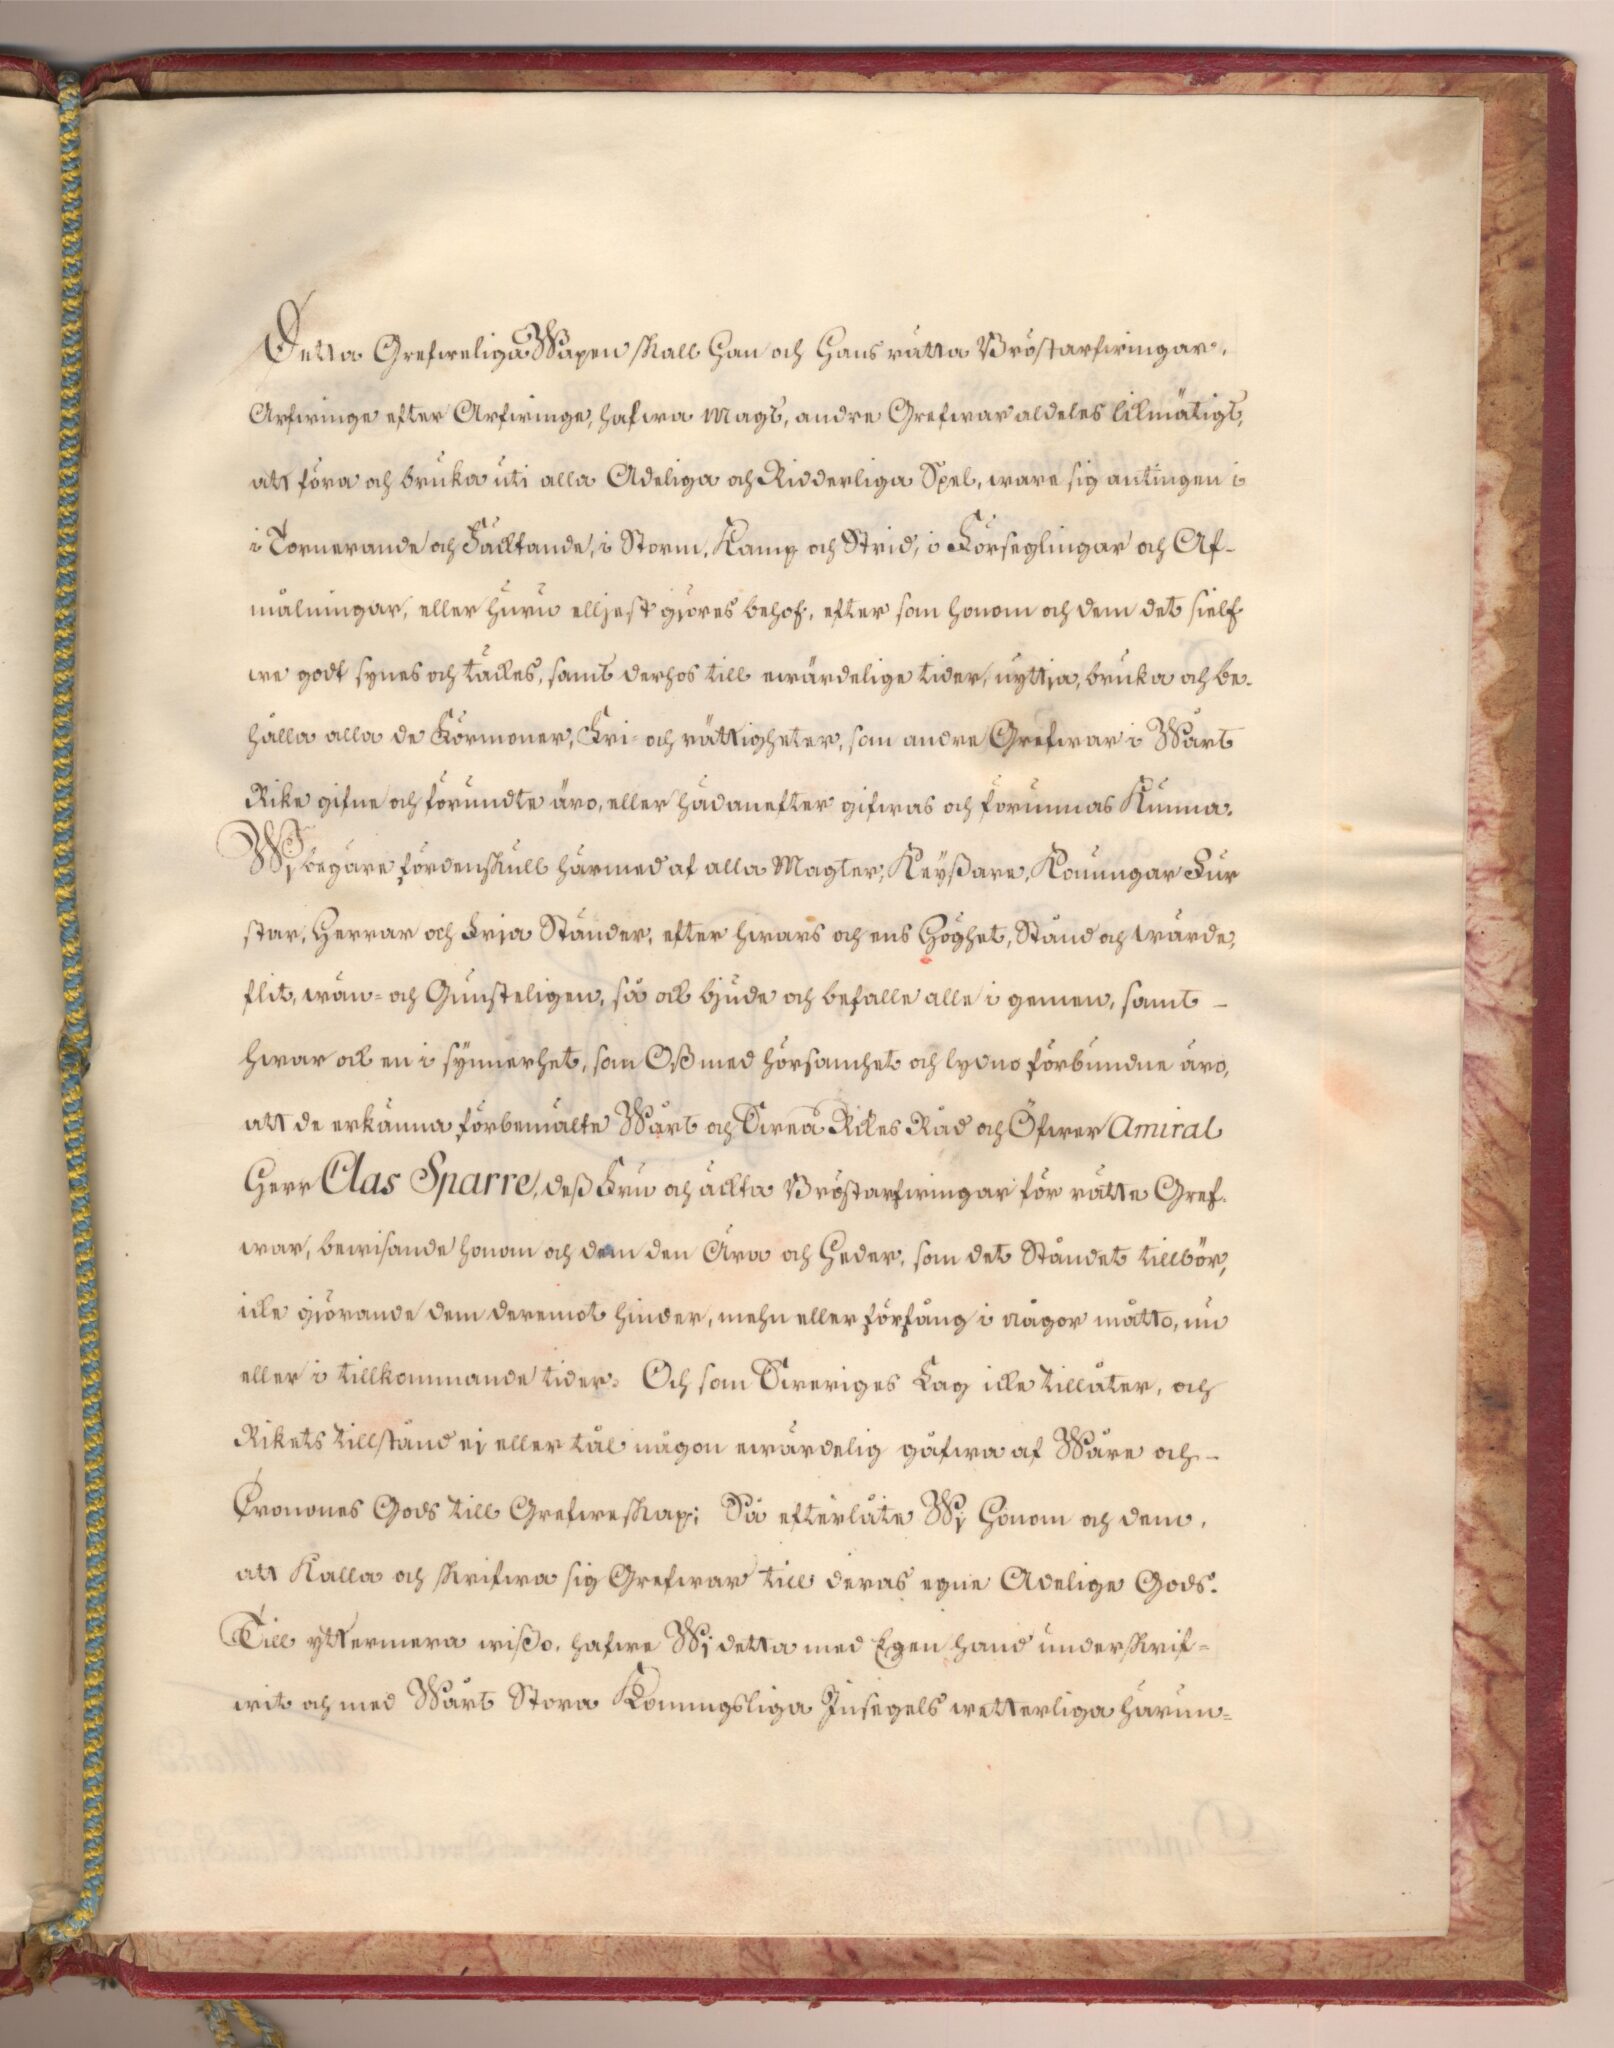 Detta Grefweliga Wapen skall Han och Hans rätta Bröstarfwingar,
Arfwinge efter Arfwinge, hafwa Magt, andre Grefwar aldeles likmätigt,
att föra och bruka uti alla Adeliga och Ridderliga Spel, ware sig antingen i
i Tornerande och Fäcktande, i Storm, Kamp och Strid, i Förseglingar och Af-
målningar, eller huru elljest gjöres behof, efter som honom och dem det sielf
we godt synes och täckes, samt derhos till ewärdelige tider, nyttja, bruka och be-
hålla alla de Förmoner, Fri- och rättigheter, som andre Grefwar i Wårt
Rike gifne och förundte äro, eller hädanefter gifwas och förunnas kunna.
Wj begäre fördenskull härmed af alla Magter, Keyßare, Konungar Fur
star, Herrar och Frja Ständer, efter hwars och ens Höghet, Stånd och wärde,
flit, wän- och Gunsteligen, så ock bjude och befalle alle i gemen, samt -
hwar ock en i synnerhet, som Oß med hörsamhet och lydno förbundne äro,
att de erkänna förbemälte Wårt och Swea Rikes Råd och Öfwer Amiral
Herr Clas Sparre, deß Fru och äckta Bröstarfwingar för rätte Gref-
war, bewisande honom och dem den Ära och Heder, som det Ståndet tillbör,
icke gjörande dem deremot hinder, mehn eller förfång i någor måtto, nu
eller i tillkommande tider. Och som Sweriges Lag icke tillåter, och
Rikets tillstånd ej eller tål någon ewärdelig gåfwa af Wåre och -
Cronones Gods till Grefweskap; Så efterlåte Wj Honom och dem,
att kalla och skrifwa sig Grefwar till deras egne Adelige Gods.
Till yttermera wißo, hafwe Wj detta med Egen hand underskrif-
wit och med Wårt Stora Konungsliga Insegels wetterliga härun-